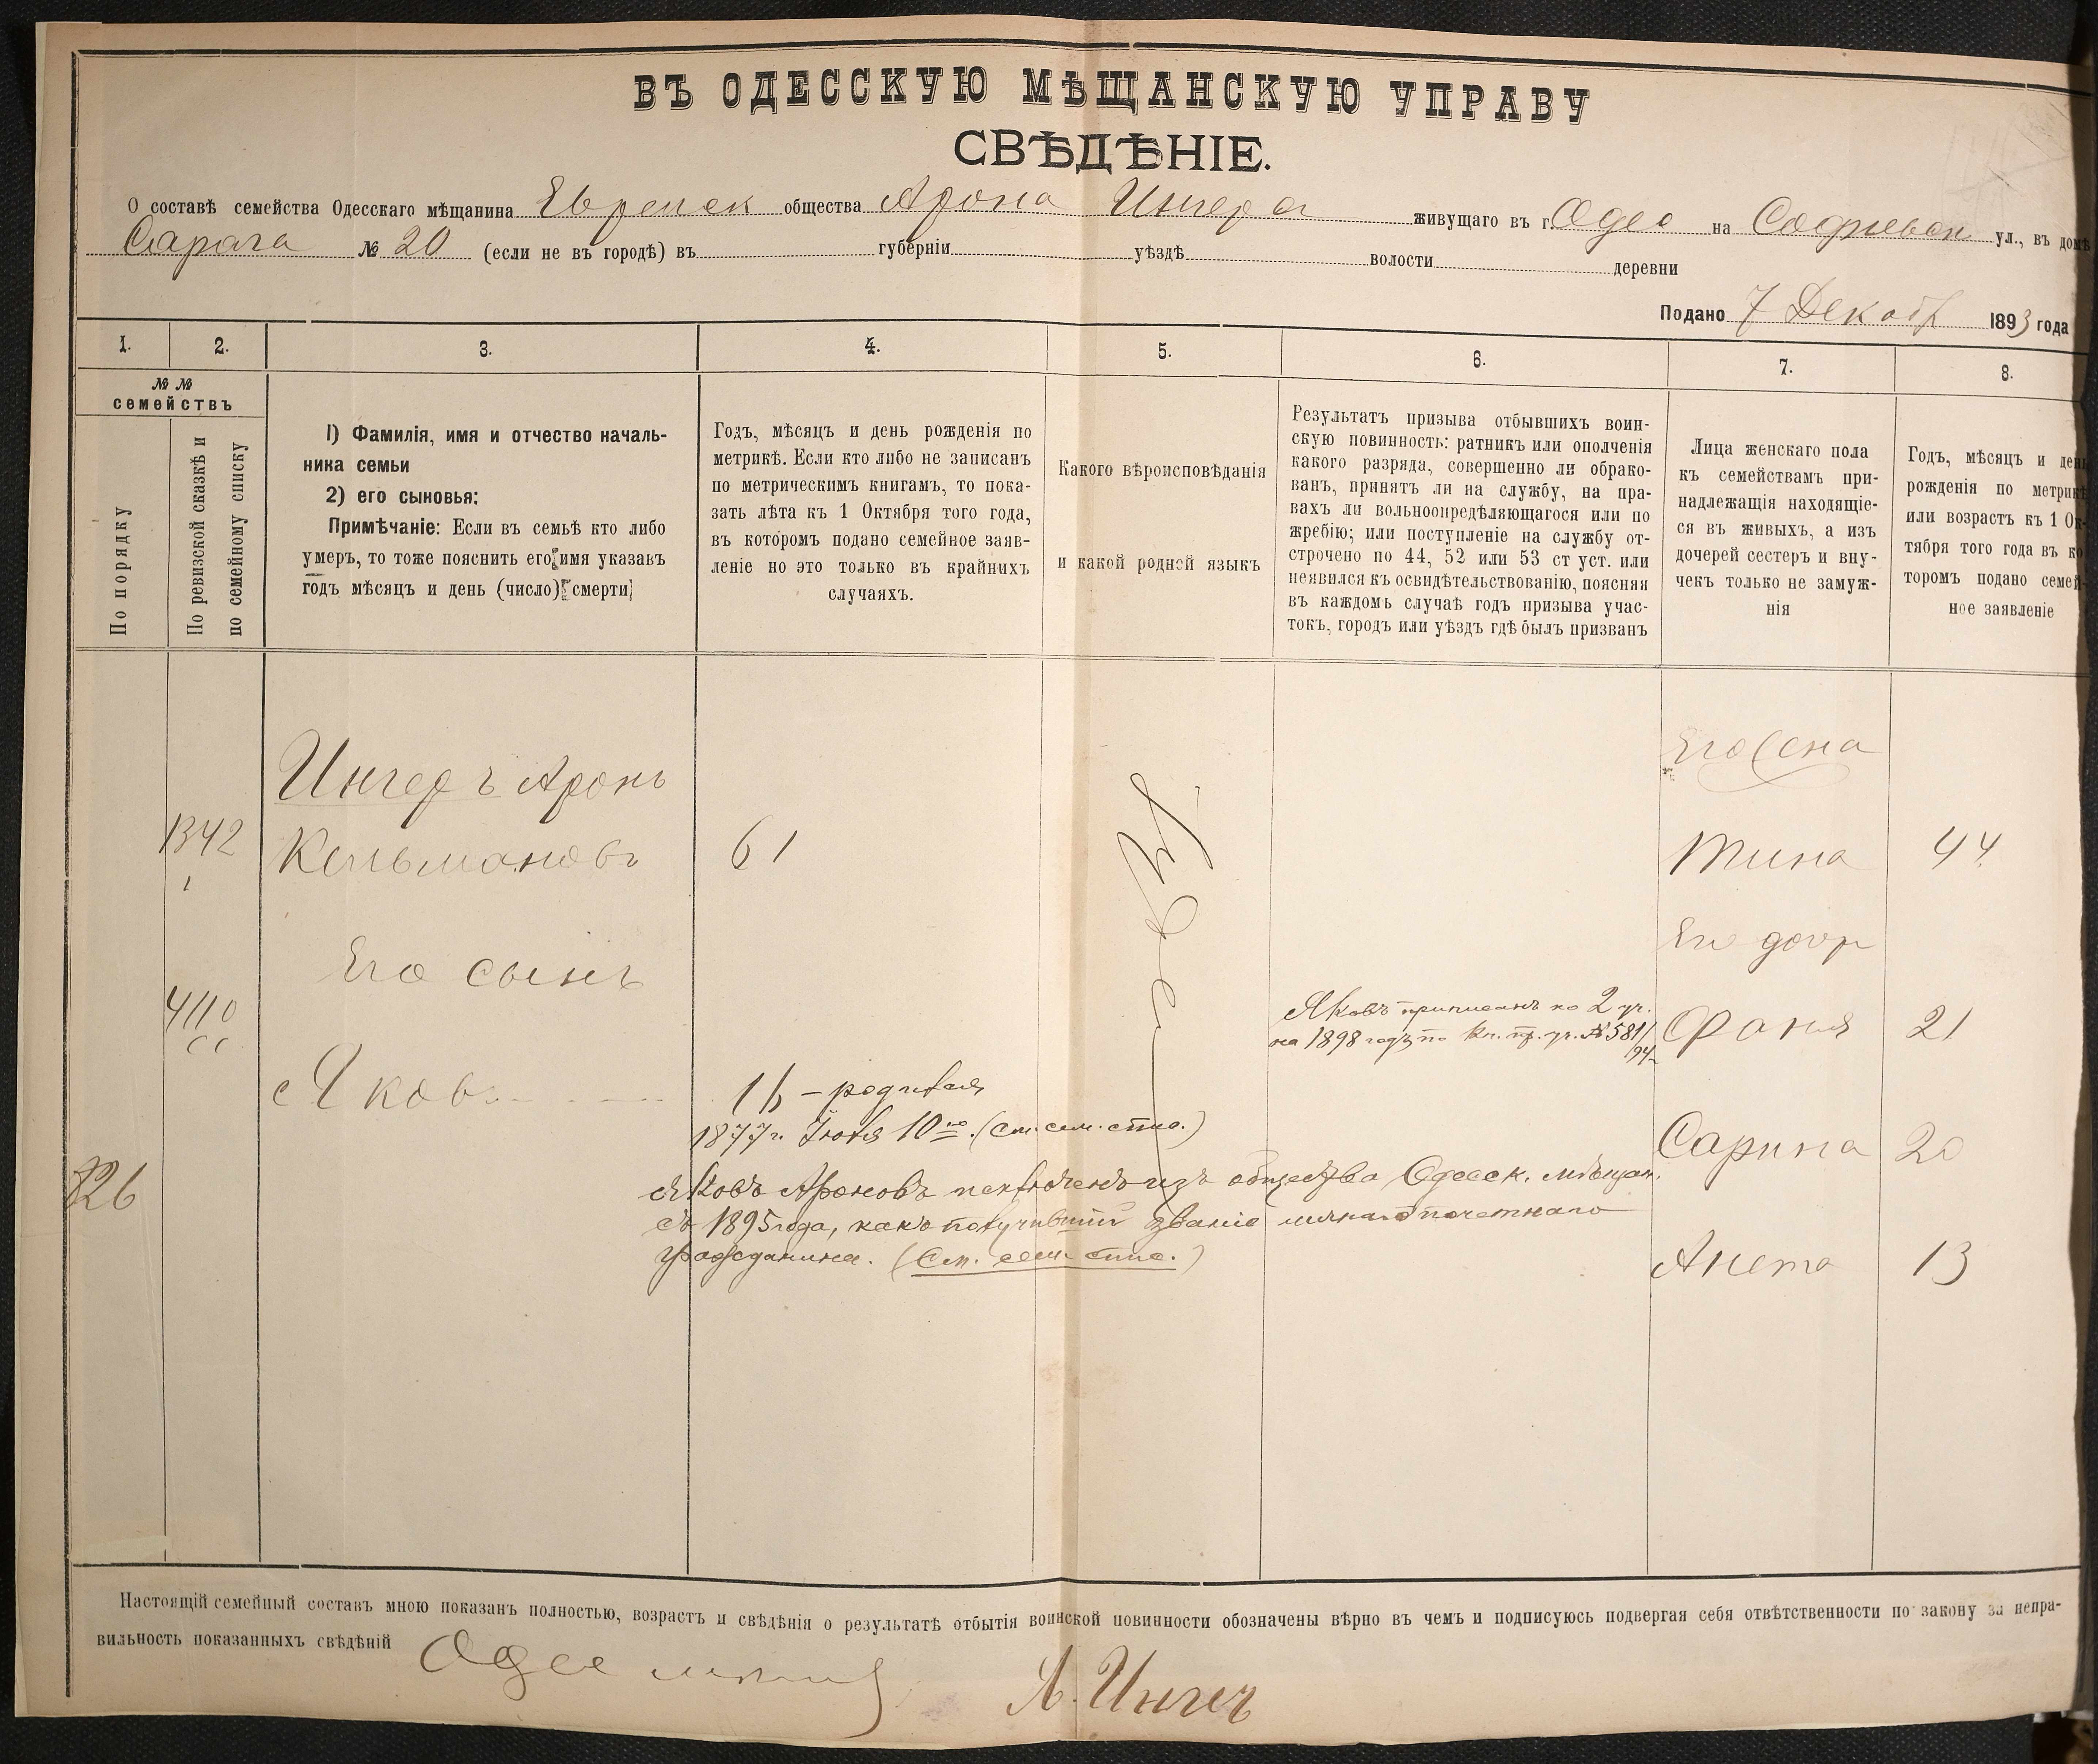 ВЪ ОДЕССКУЮ МѢЩАНСКУЮ УПРАВУ
СВѢДѢНІЕ.
О составѣ семейства Одесскаго мѣщанина Еврейск общества Арона Ингера живущаго въ г. Одес на Софіевск ул., въ домѣ
Сарача № 20 (если не въ городѣ) въ губерніи уѣздѣ волости деревни
Подано 7 Декабр 1893 года
1. 2. 3. 4. 5. 6. 7. 8.
№ №
семействъ
По порядку
По ревизской сказкѣ и
по семейному списку
1) Фамилія, имя и отчество началь-
ника семьи
2) его сыновья:
Примѣчаніе: Если въ семьѣ кто либо
умеръ, то тоже пояснить его имя указавъ
годъ мѣсяцъ и день (число) смерти
Годъ, мѣсяцъ и день рожденія по
метрикѣ. Если кто либо не записанъ
по метрическимъ книгамъ, то пока-
зать лѣта къ 1 Октября того года,
въ которомъ подано семейное заяв-
леніе но это только въ крайнихъ
случаяхъ.
Какого вѣроисповѣданія
и какой родной языкъ
Результатъ призыва отбывшихъ воин-
скую повинность: ратникъ или ополченія
какого разряда, совершенно ли обрако-
ванъ, принятъ ли на службу, на пра-
вахъ ли вольноопредѣляющагося или по
жребію; или поступленіе на службу от-
строчено по 44, 52 или 53 ст уст. или
неявился къ освидѣтельствованію, поясняя
въ каждомъ случаѣ годъ призыва учас-
токъ, городъ или уѣздъ гдѣ былъ призванъ
Лица женскаго пола
къ семействамъ при-
надлежащія находящіе-
ся въ живыхъ, а изъ
дочерей сестеръ и вну-
чекъ только не замуж-
нія
Годъ, мѣсяцъ и день
рожденія по метрикѣ
или возрастъ къ 1 Ок-
тября того года въ ко
торомъ подано семей-
ное заявленіе
Ингеръ Аронъ
1342
Кельмановъ
61
Его жена
Тина 44
Его сынъ
Его дочр
4110
Яковъ приписанъ ко 2 уч.
на 1898 годъ по Кн. пр. уч. № 581/
94
Фаня 21
Яковъ
16 – родился
1877 г. Іюля 10го. (См. сем. спис.)
Сарина 20
826
Яковъ Ароновъ исключенъ изъ общества Одесск. мѣщан.
съ 1895 года, какъ получившій званіе личнаго почетнаго
гражданина. (См. сем. спис.)
Анета 13
Настоящій семейный составъ мною показанъ полностью, возрастъ и свѣдѣнія о результатѣ отбытія воинской повинности обозначены вѣрно въ чемъ и подписуюсь подвергая себя отвѣтственности по закону за непра-
вильность показанныхъ свѣдѣній
А. Ингеръ